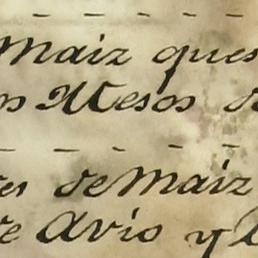 Maiz ques
os Mesos de
es de Maiz
de Avio y l